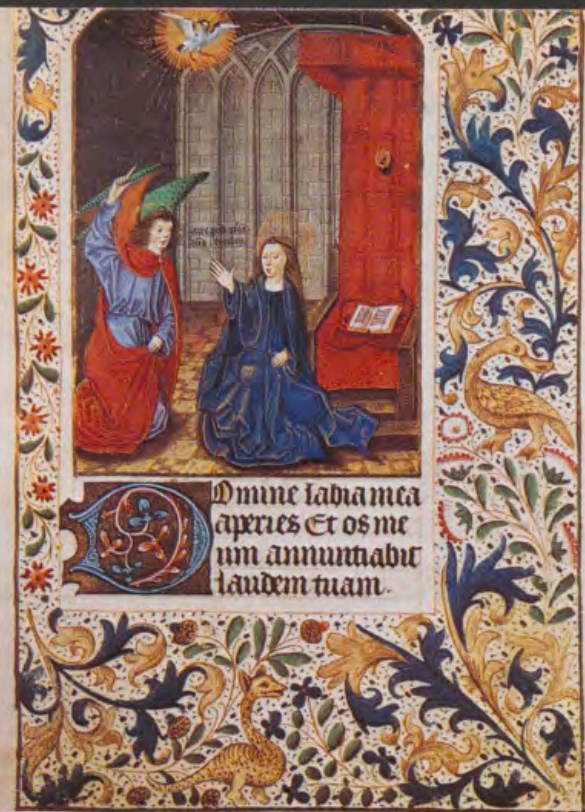 Domine labia mea
aperies Et os me
um annuntiabit
laudem tuam.